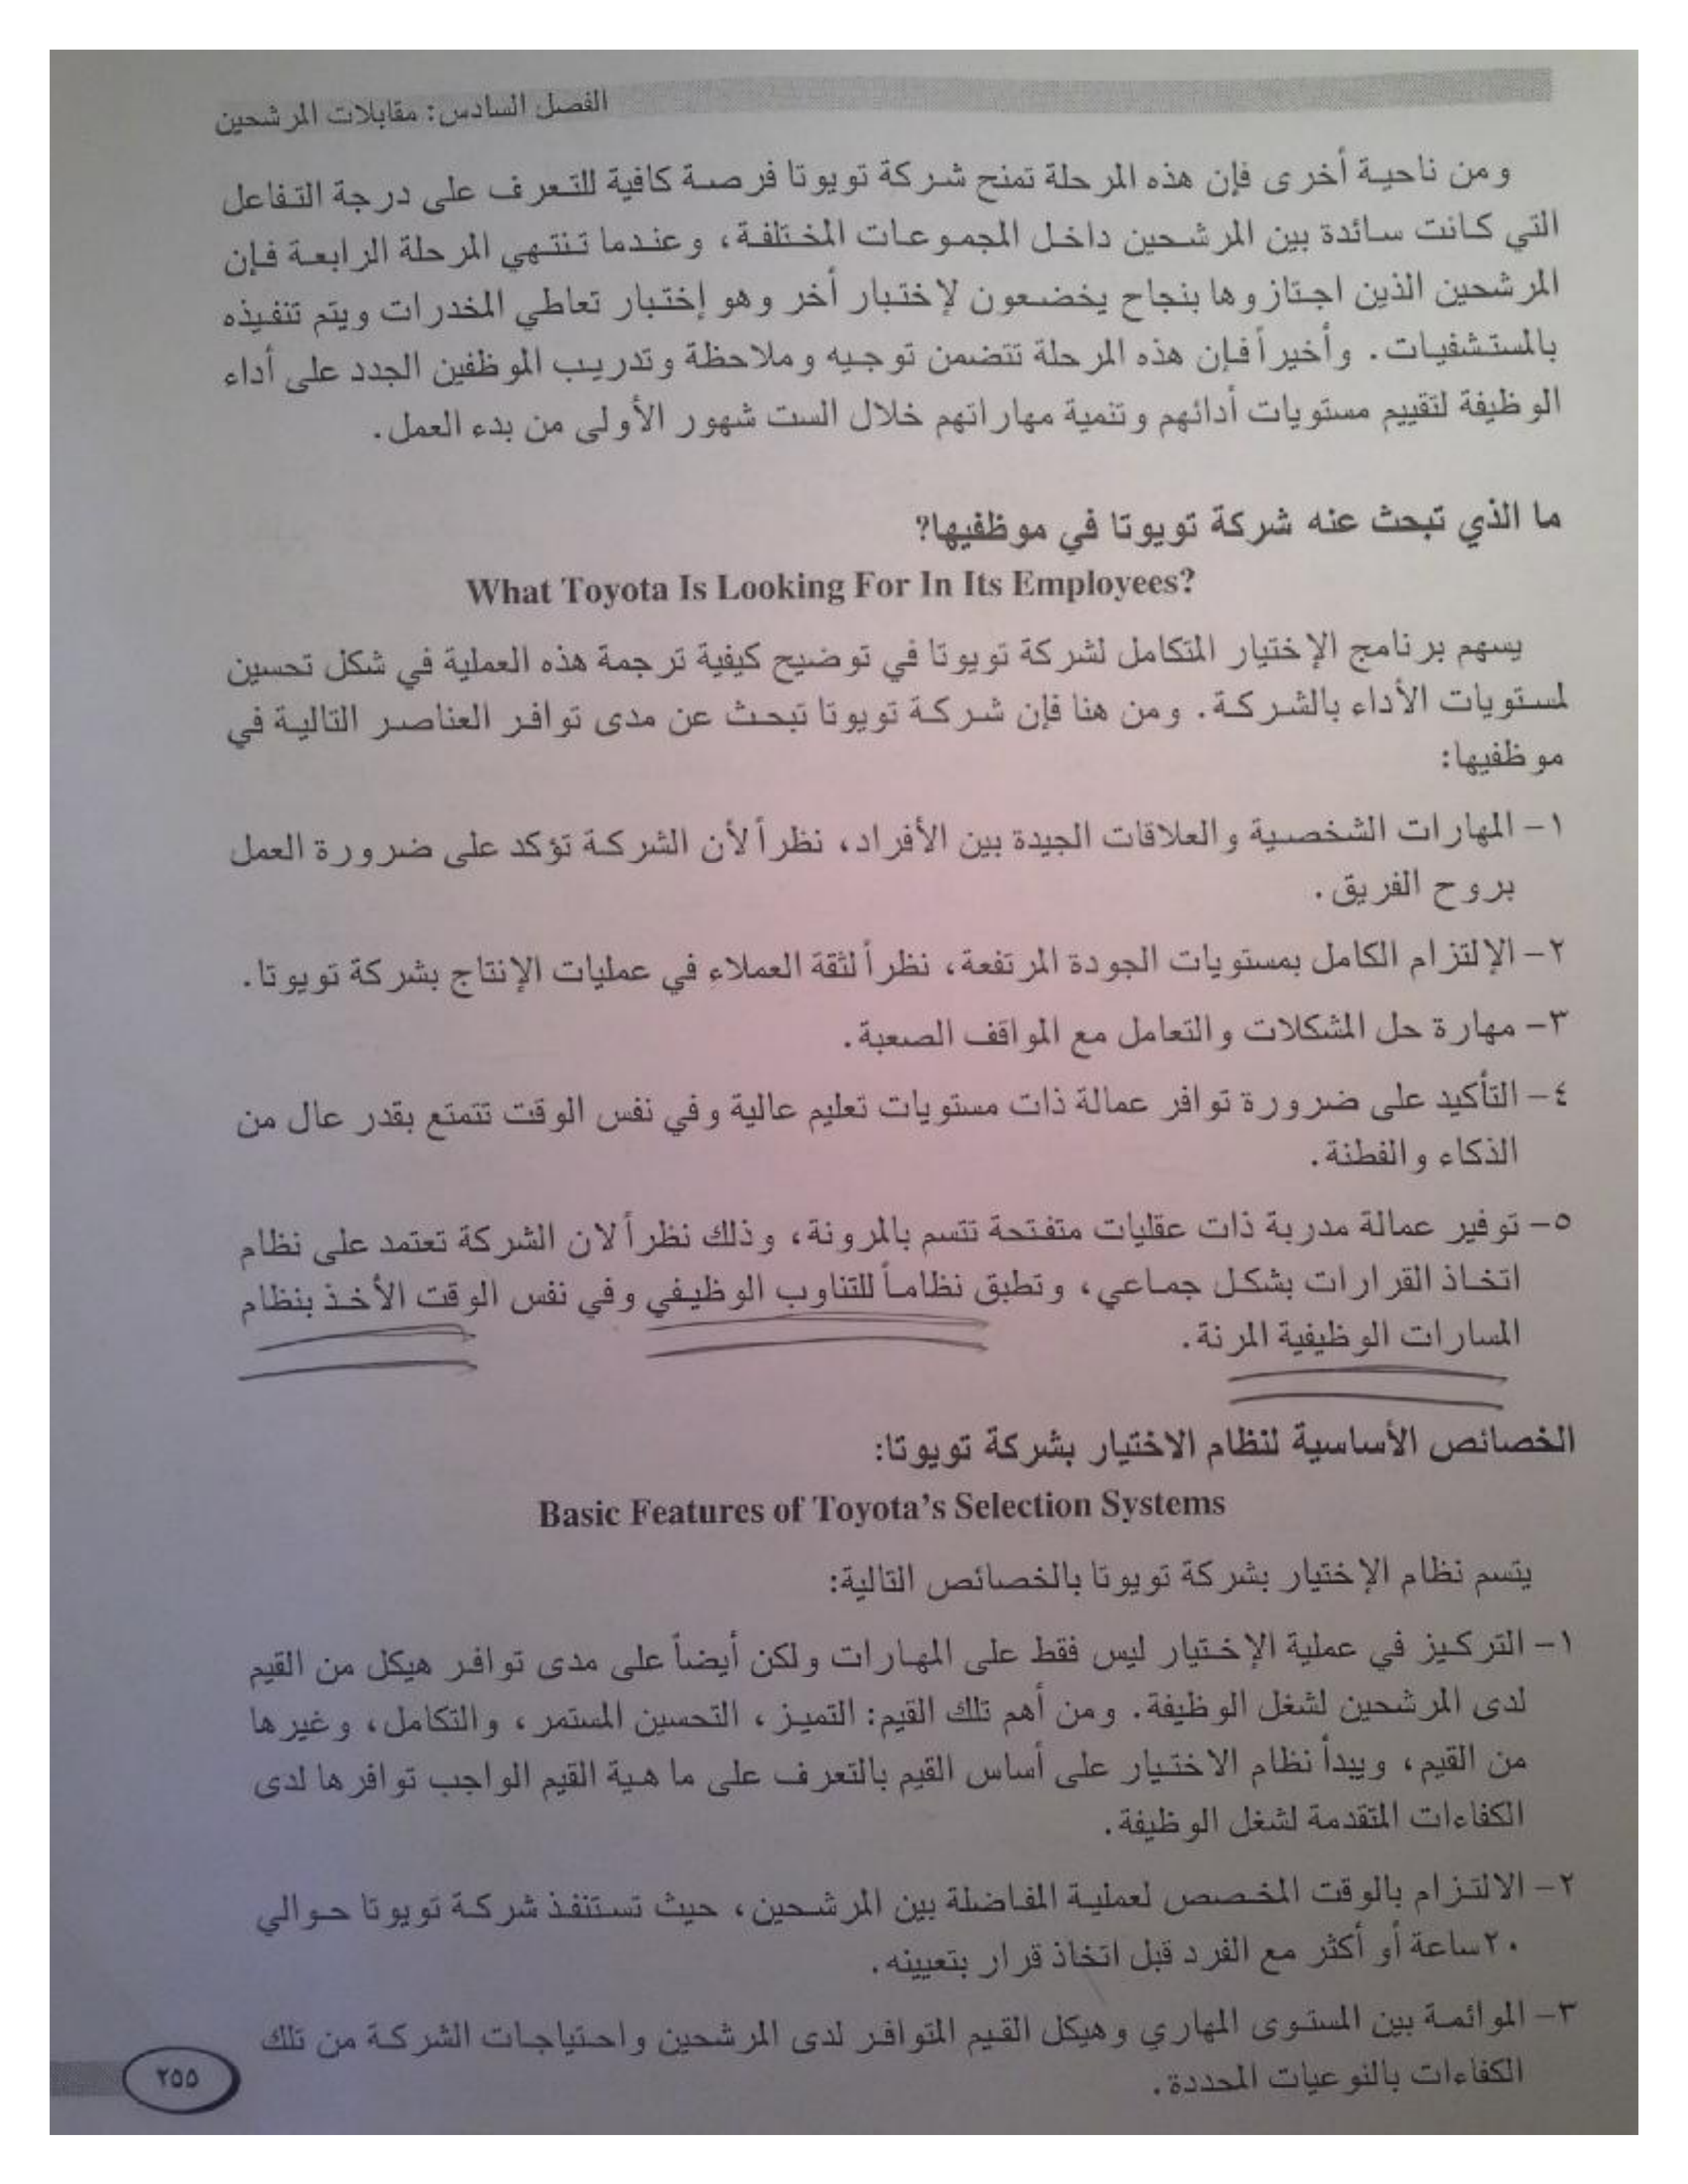 الفصل السادس: مقابلات المرشحين
ومن ناحية أخرى فإن هذه المرحلة تمنح شركة تويوتا فرصة كافية للتعرف على درجة التفاعل
التي كانت سائدة بين المرشحين داخل المجموعات المختلفة، وعندما تنتهي المرحلة الرابعة فإن
المرشحين الذين اجتازوها بنجاح يخضعون لإختبار أخر وهو إختبار تعاطي المخدرات ويتم تنفيذه
بالمستشفيات. وأخيراً فإن هذه المرحلة تتضمن توجيه وملاحظة وتدريب الموظفين الجدد على أداء
الوظيفة لتقييم مستويات أدائهم وتنمية مهاراتهم خلال الست شهور الأولى من بدء العمل.
ما الذي تبحث عنه شركة تويوتا في موظفيها؟
What Toyota Is Looking For In Its Employees?
يسهم برنامج الإختيار المتكامل لشركة تويوتا في توضيح كيفية ترجمة هذه العملية في شكل تحسين
لمستويات الأداء بالشركة. ومن هنا فإن شركة تويوتا تبحث عن مدى توافر العناصر التالية في
موظفيها:
١- المهارات الشخصية والعلاقات الجيدة بين الأفراد، نظراً لأن الشركة تؤكد على ضرورة العمل
بروح الفريق.
٢- الإلتزام الكامل بمستويات الجودة المرتفعة، نظراً لثقة العملاء في عمليات الإنتاج بشركة تويوتا.
٣- مهارة حل المشكلات والتعامل مع المواقف الصعبة.
٤- التأكيد على ضرورة توافر عمالة ذات مستويات تعليم عالية وفي نفس الوقت تتمتع بقدر عال من
الذكاء والفطنة.
٥- توفير عمالة مدربة ذات عقليات متفتحة تتسم بالمرونة، وذلك نظراً لان الشركة تعتمد على نظام
اتخاذ القرارات بشكل جماعي، وتطبق نظاماً للتناوب الوظيفي وفي نفس الوقت الأخذ بنظام
المسارات الوظيفية المرنة.
الخصائص الأساسية لنظام الاختيار بشركة تويوتا:
Basic Features of Toyota’s Selection Systems
يتسم نظام الإختيار بشركة تويوتا بالخصائص التالية:
١- التركيز في عملية الإختيار ليس فقط على المهارات ولكن أيضاً على مدى توافر هيكل من القيم
لدى المرشحين لشغل الوظيفة. ومن أهم تلك القيم: التميز، التحسين المستمر، والتكامل، وغيرها
من القيم، ويبدأ نظام الاختيار على أساس القيم بالتعرف على ما هية القيم الواجب توافرها لدى
الكفاءات المتقدمة لشغل الوظيفة.
٢- الالتزام بالوقت المخصص لعملية المفاضلة بين المرشحين، حيث تستنفذ شركة تويوتا حوالي
٢٠ساعة أو أكثر مع الفرد قبل اتخاذ قرار بتعيينه.
٣- الموائمة بين المستوى المهاري وهيكل القيم المتوافر لدى المرشحين واحتياجات الشركة من تلك
الكفاءات بالنوعيات المحددة.
٢٥٥